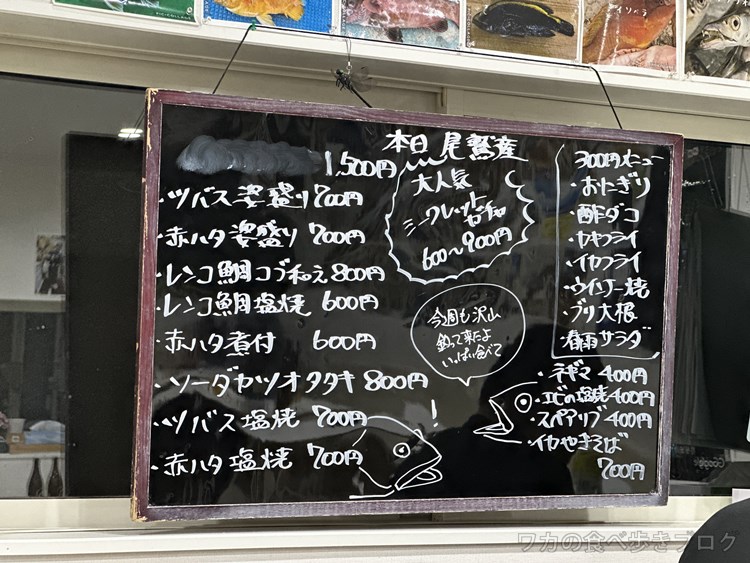 本日尾鷲産
1,500円
・ツバス姿盛り700円
・赤ハタ姿盛り 700円
・レンコ鯛コブ和え800円
・レンコ鯛塩焼 600円
・赤ハタ煮付 600円
・ソーダヤツオタタキ 800円
・ツバス塩焼 700円
・赤ハタ塩焼 700円
大人気
シークレット
ガチャ
600〜900円
今週も沢山
釣って来たよ
いっぱい食べて
!
300円メニュー
・おにぎり
・酢ダコ
・カキフライ
・イカフライ
・ウインナー焼
・ブリ大根
・春雨サラダ
・ネギマ 400円
・エビの塩焼400円
・スペアリブ400円
・イカやきそば
700円
ワカの食べ歩きブログ